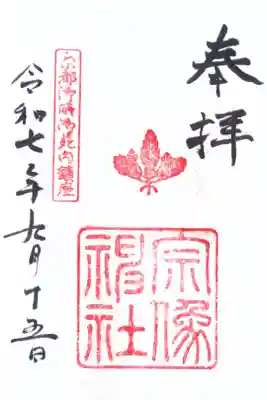 奉拝
宗像神社
京都御所御苑内鎮座
令和七年九月十五日